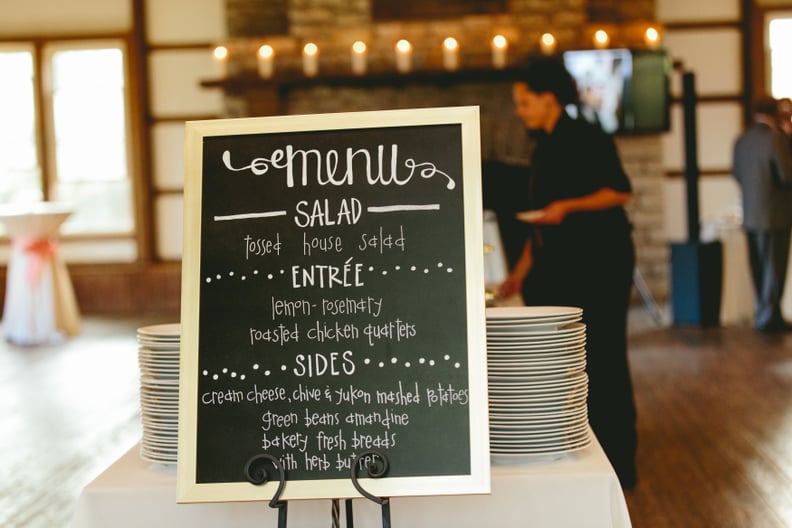 menu
SALAD
tossed house salad
ENTRÉE
lemon-rosemary
roasted chicken quarters
SIDES
cream cheese, chive & yukon mashed potatoes
green beans amandine
bakery fresh breads
with herb butter